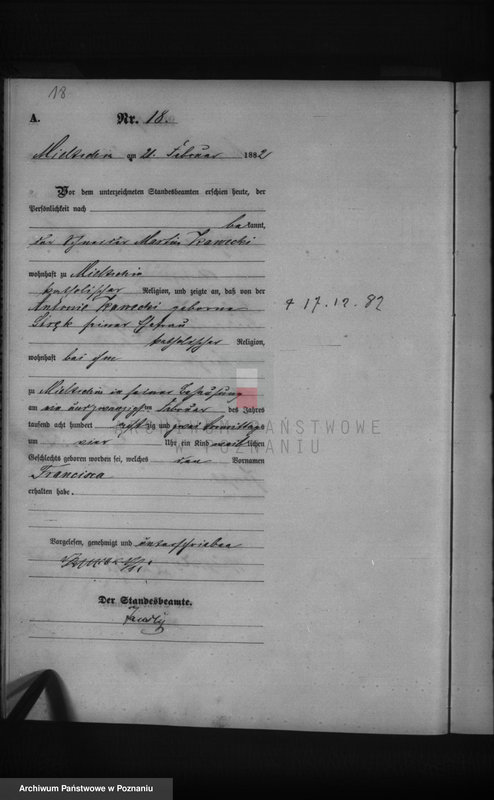 18
A.
Nr. 18.
Mieltschin am 21. Februar 1882
Vor dem unterzeichneten Standesbeamten erschien heute, der
Persönlichkeit nach
bekannt,
der Schneider Martin Krawecki
wohnhaft zu Mieltschin
katholischer Religion, und zeigte an, daß von der
Antonie Krawecki geborene
seiner Ehefrau
katholischer Religion,
wohnhaft bei ihm
zu Mieltschin in seiner Behausung
am Februar des Jahres
tausend acht hundert achtzig und zwei Vormittags
um vier Uhr ein Kind weiblichen
Geschlechts geboren worden sei, welches den Vornamen
Francisca
erhalten habe.
Vorgelesen, genehmigt und unterschrieben
Der Standesbeamte.
+ 17.12.82
ARCHIWUM PAŃSTWOWE
W POZNANIU
Archiwum Państwowe w Poznaniu